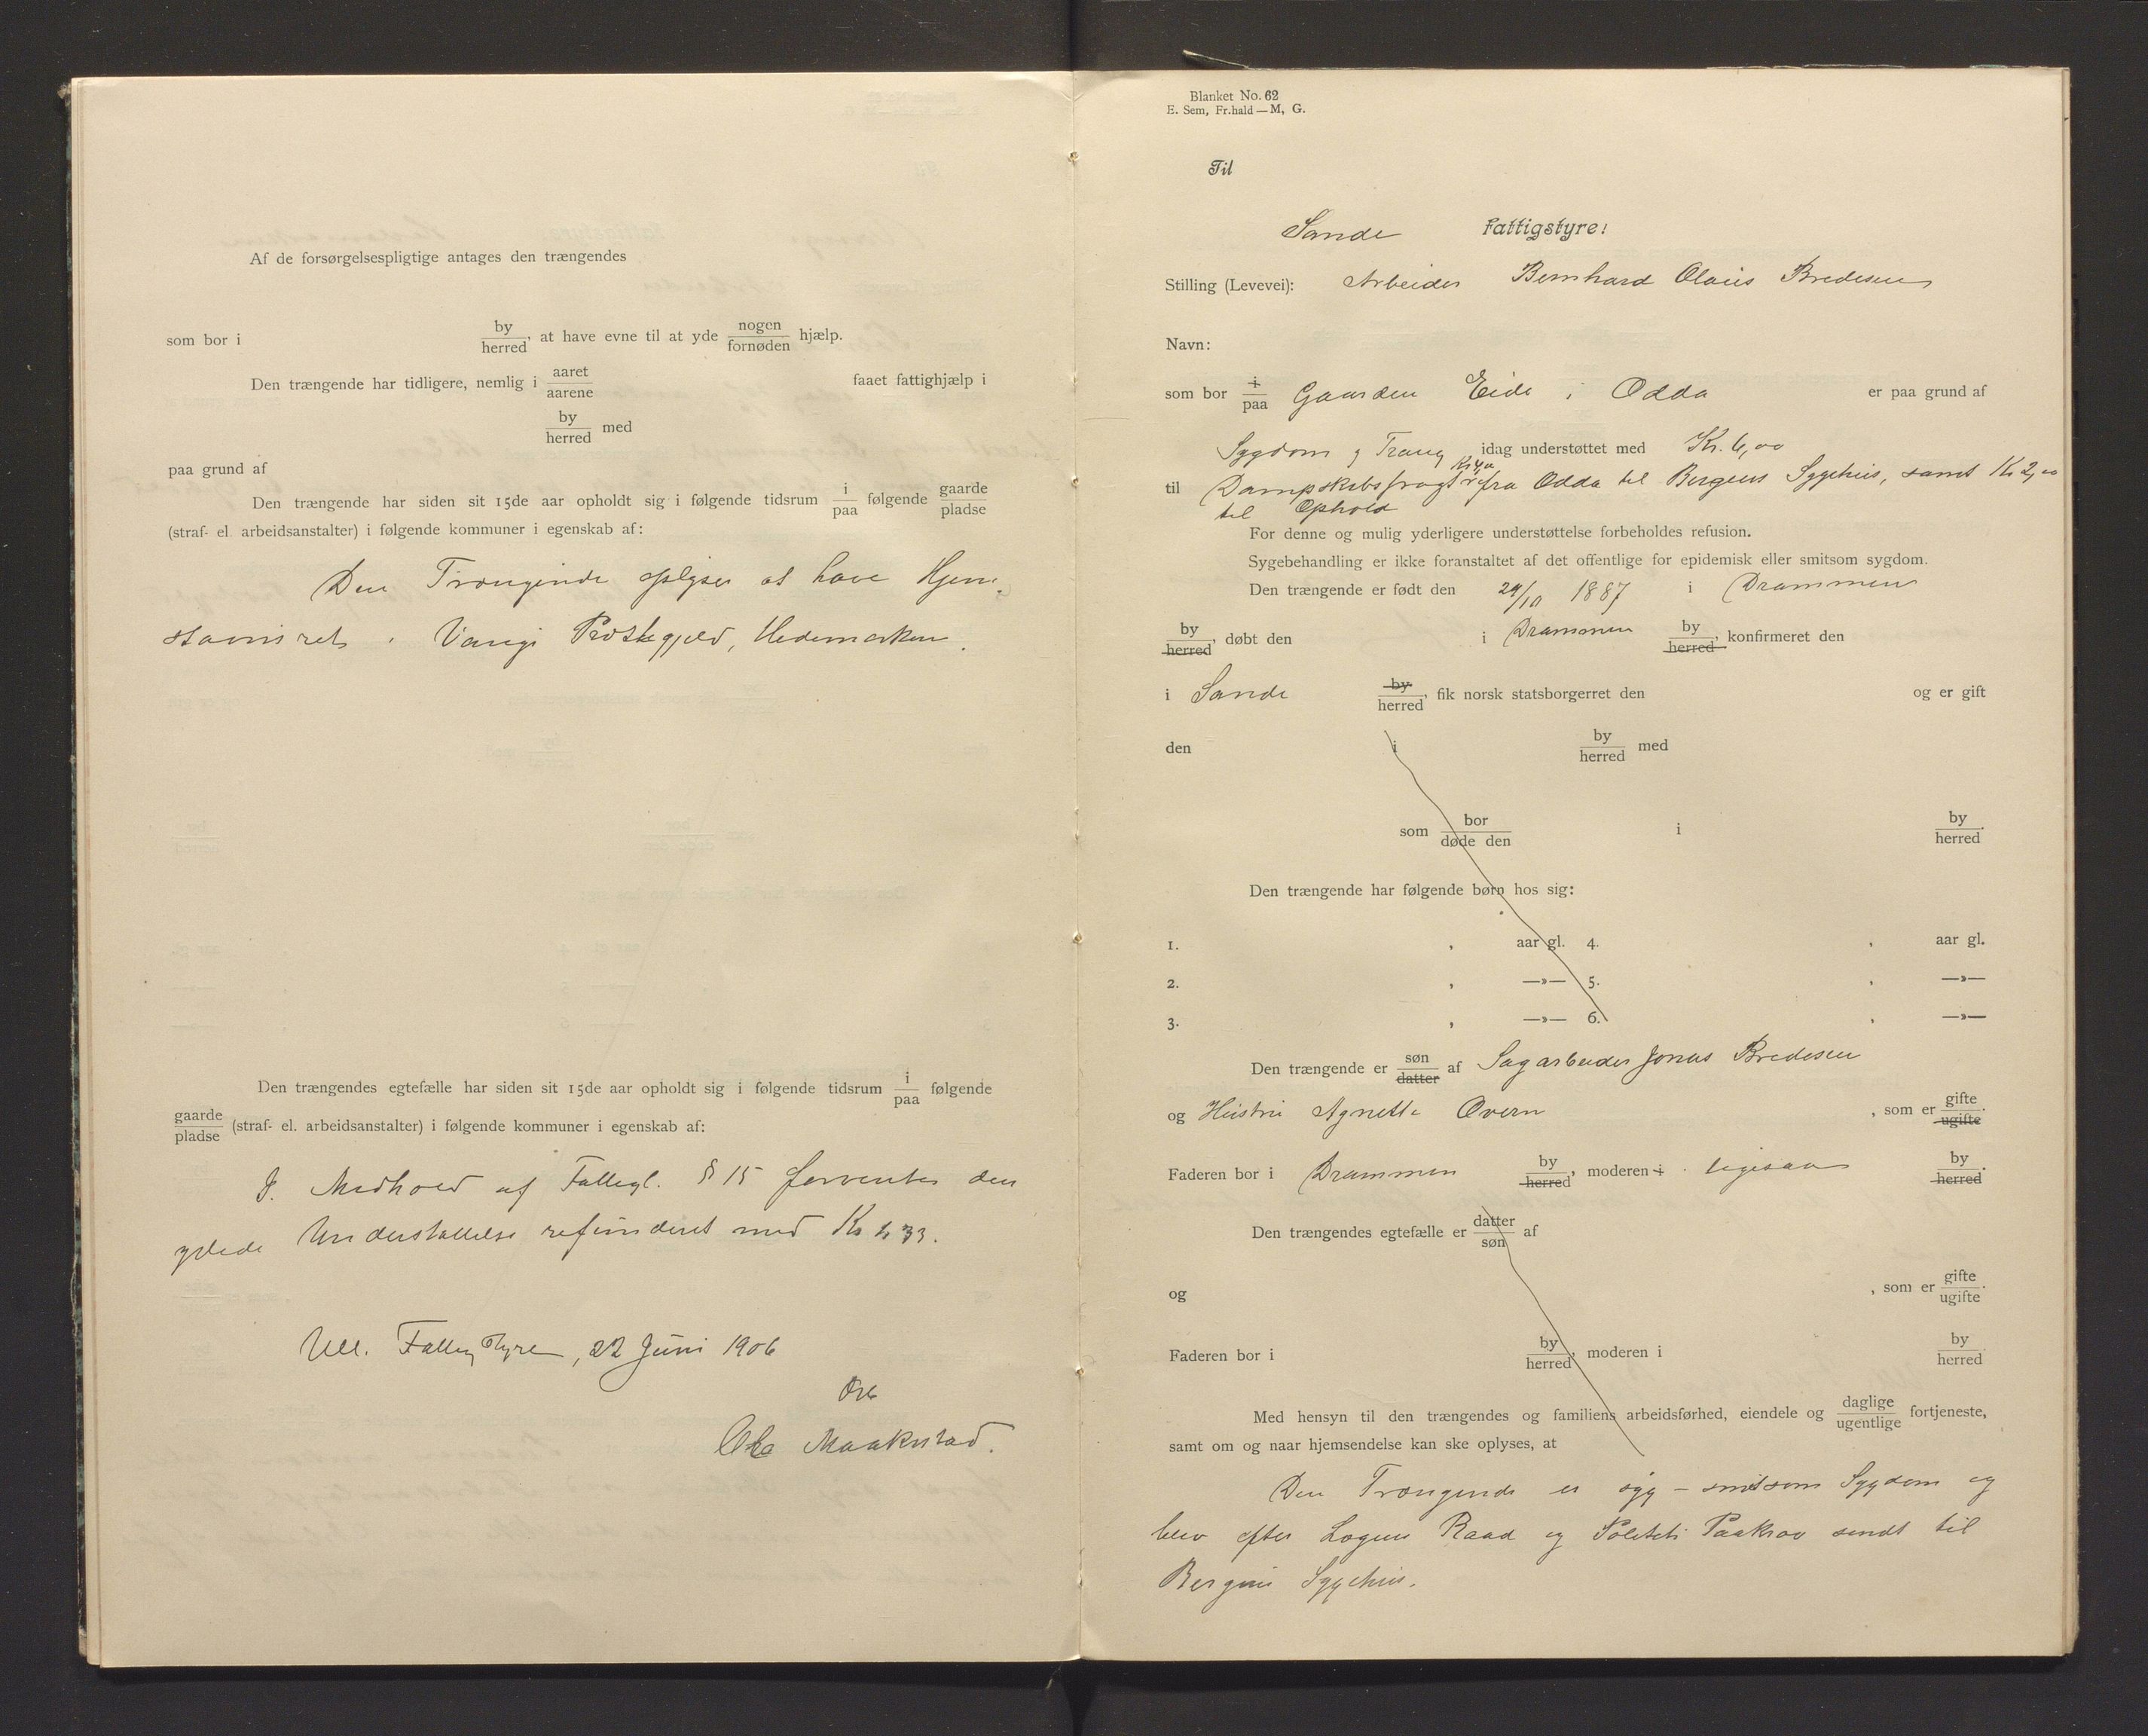 Af de forsørgelsespligtige antages den trængendes
som bor i by/herred, at have evne til at yde nogen/fornøden hjælp.
Den trængende har tidligere, nemlig i aaret/aarene faaet fattighjælp i
by/herred med
paa grund af
Den trængende har siden sit 15de aar opholdt sig i følgende tidsrum i/paa følgende gaarde/pladse
(straf- el. arbeidsanstalter) i følgende kommuner i egenskab af:
Den Trængende oplyser at have Hjem-
stavnsret i Vangs Præstegjeld, Hedemarken.
Den trængendes egtefælle har siden sit 15de aar opholdt sig i følgende tidsrum i/paa følgende
gaarde/pladse (straf- el. arbeidsanstalter) i følgende kommuner i egenskab af:
I Medhold af Fattigl. § 15 forventes den
ydede Understøttelse refunderet med Kr
Ull. Fattigstyre, 22 Juni 1906
Maakestad.
Blanket No. 62
E. Sem, Fr.hald — M, G.
Til
Sande fattigstyre!
Stilling (Levevei): Arbeider Bernhard Olaus Bredesen
Navn:
som bor i/paa Gaarden Eide i Odda er paa grund af
Sygdom og Trang idag understøttet med Kr. 6,00
til Dampskibsfragt Kr 4,00 fra Odda til Bergens Sygehus, samt Kr 2,00
til Ophold
For denne og mulig yderligere understøttelse forbeholdes refusion.
Sygebehandling er ikke foranstaltet af det offentlige for epidemisk eller smitsom sygdom.
Den trængende er født den 29/10 1887 i Drammen
by/herred, døbt den i Drammen by/herred, konfirmeret den
i Sande by/herred, fik norsk statsborgerret den og er gift
den i by/herred med
som bor/døde den i by/herred.
Den trængende har følgende børn hos sig:
1. , aar gl. 4. , aar gl.
2. , —»— 5. , —»—
3. , —»— 6. , —»—
Den trængende er søn/datter af Sagarbeider Jonas Bredesen
og Hustru Agnette Overn , som er gifte/ugifte.
Faderen bor i Drammen by/herred, moderen i ligesaa by/herred.
Den trængendes egtefælle er datter/søn af
og , som er gifte/ugifte.
Faderen bor i by/herred, moderen i by/herred.
Med hensyn til den trængendes og familiens arbeidsførhed, eiendele og daglige/ugentlige fortjeneste,
samt om og naar hjemsendelse kan ske oplyses, at
Den Trængende er syg – smitsom Sygdom og
blev efter Lægens Raad og Politets Paakrav sendt til
Bergens Sygehus.